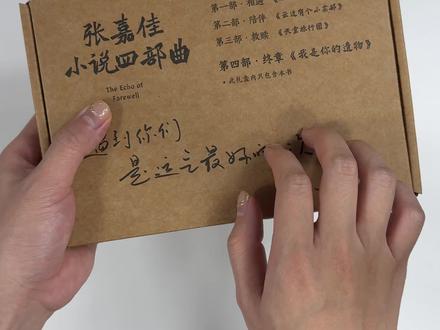 张嘉佳
小说四部曲
The Echo of
Farewell
第一部·相遇
第二部·陪伴《云边有个小卖部》
第三部·救赎《天堂旅行团》
第四部·终章《我是你的遗物》
·此礼盒内只包含本书
遇到你们
是这辈子最好的